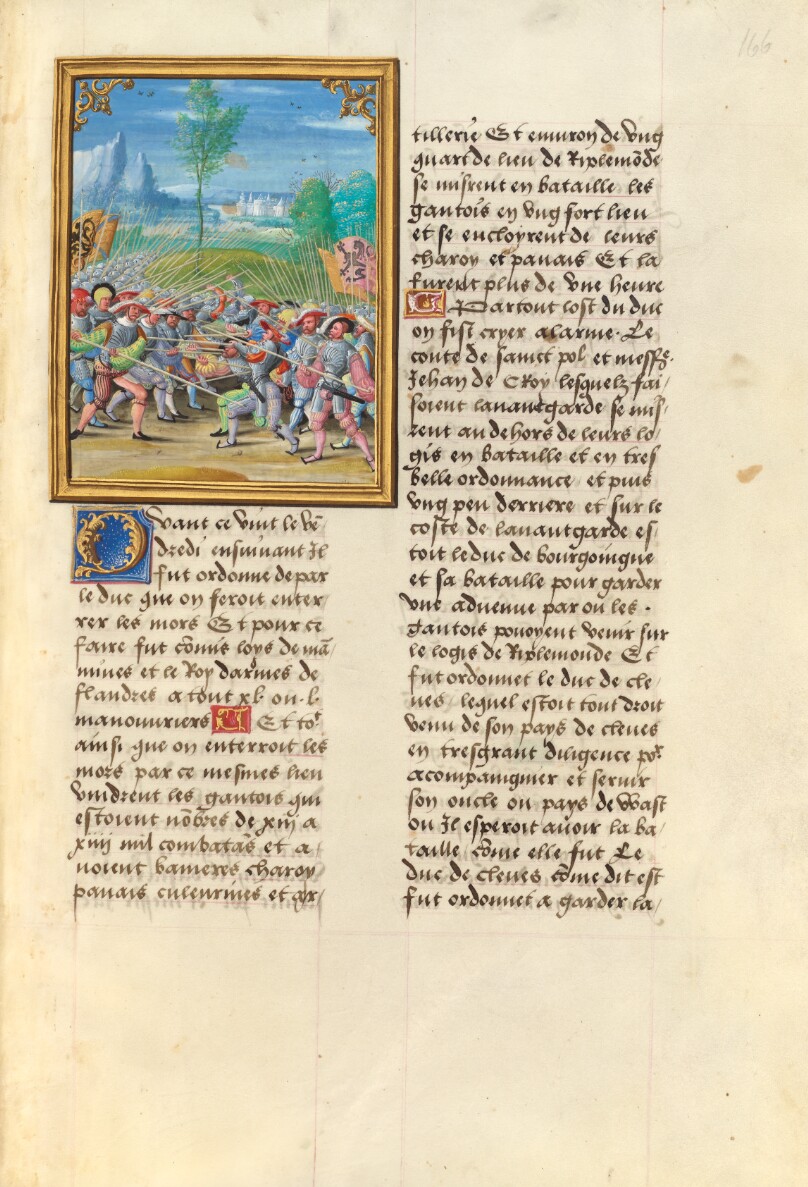 166
Quant ce vint le vē
dredi ensuiuant Il
fut ordonne de par
le duc que on feroit enter
rer les mors Et pour ce
faire fut cōmis loys de mā
mines et le Roy darmes de
flandres a tout xl ou l
manouuriers Et toꝰ
ainsi que on enterroit les
mors par ce mesmes lieu
vindrent les gantois qui
estoient nōbrés de xiij a
xiiij mil combatās et a
uoient banieres charoy
pauais culeurines et ar
tillerie Et enuiron de vng
quart de lieu de Riplemōde
se misrent en bataille les
gantois en vng fort lieu
et se encloyrent de leurs
charoy et pauais Et la
furent plus de vne heure
Partout lost du duc
on fist cryer alarme. Le
conte de sainct pol et messꝰ.
Jehan de Croy lesquelz fai
soient lauantgarde se mis
rent au dehors de leurs lo
gis en bataille et en tres
belle ordonnance et puis
vng peu derriere et sur le
coste de lauantgarde es
toit le duc de bourgoingne
et sa bataille pour garder
vne aduenue par ou les .
gantois pouoyent venir sur
le logis de Riplemonde Et
fut ordonnet le duc de cle
ues lequel estoit tout droit
venu de son pays de cleues
en tresgrant diligence poʳ
acompaingnier et seruir
son oncle ou pays de Wast
ou Il esperoit auoir la ba
taille cōme elle fut Le
duc de cleues cōme dit est
fut ordonnet a garder la